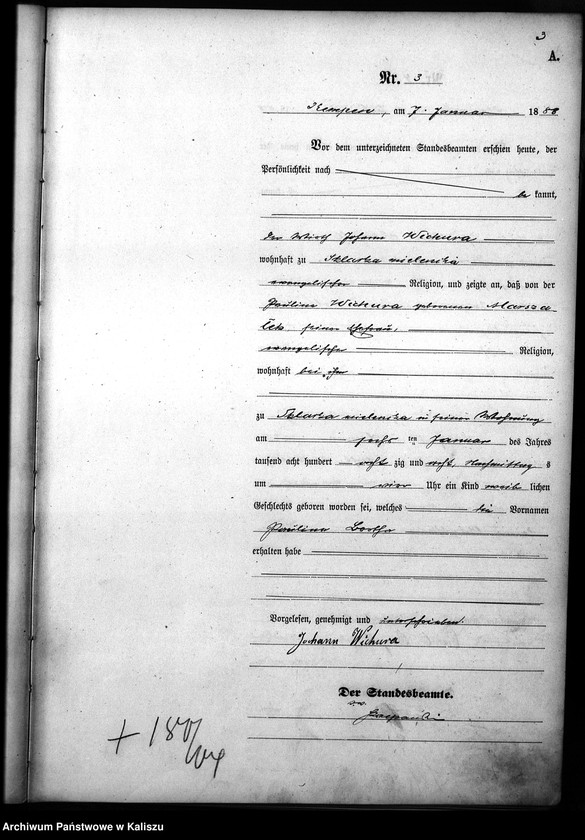 3
A.
Nr. 3
Kempen, am 7. Januar 1888
Vor dem unterzeichneten Standesbeamten erschien heute, der
Persönlichkeit nach
be kannt,
der Wirth Johann Wichura
wohnhaft zu Sklarka mielenska
evangelischer Religion, und zeigte an, daß von der
Paulina Wichura geborenen Marsza-
lek seiner Ehefrau,
evangelischer Religion,
wohnhaft bei ihm
zu Sklarka mielenska in seiner Wohnung
am sechs ten Januar des Jahres
tausend acht hundert acht zig und acht, Nachmittag s
um vier Uhr ein Kind weib lichen
Geschlechts geboren worden sei, welches die Vornamen
Paulina Bertha
erhalten habe
Vorgelesen, genehmigt und unterschrieben.
Johann Wichura
Der Standesbeamte.
+ 18
Archiwum Państwowe w Kaliszu